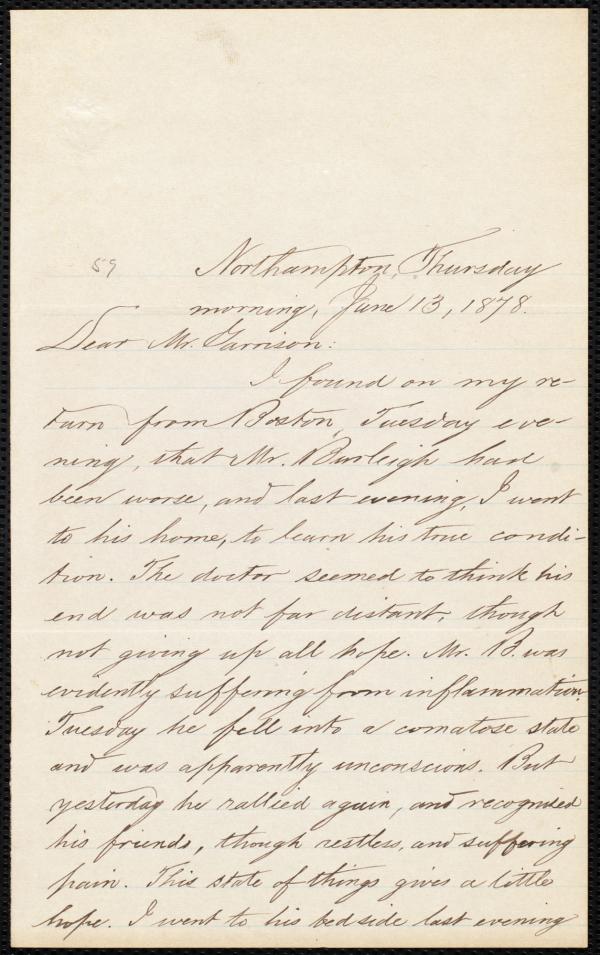 59
Northampton, Thursday
morning, June 13, 1878.
Dear Mr. Garrison:
I found on my re-
turn from Boston, Tuesday eve-
ning, that Mr. Burleigh had
been worse, and last evening, I went
to his home, to learn his true condi-
tion. The doctor seemed to think his
end was not far distant, though
not giving up all hope. Mr. B. was
evidently suffering from inflammation.
Tuesday he fell into a comatose state
and was apparently unconscious. But
yesterday he rallied again, and recognised
his friends, though restless, and suffering
pain. This state of things gives a little
hope. I went to his bedside last evening